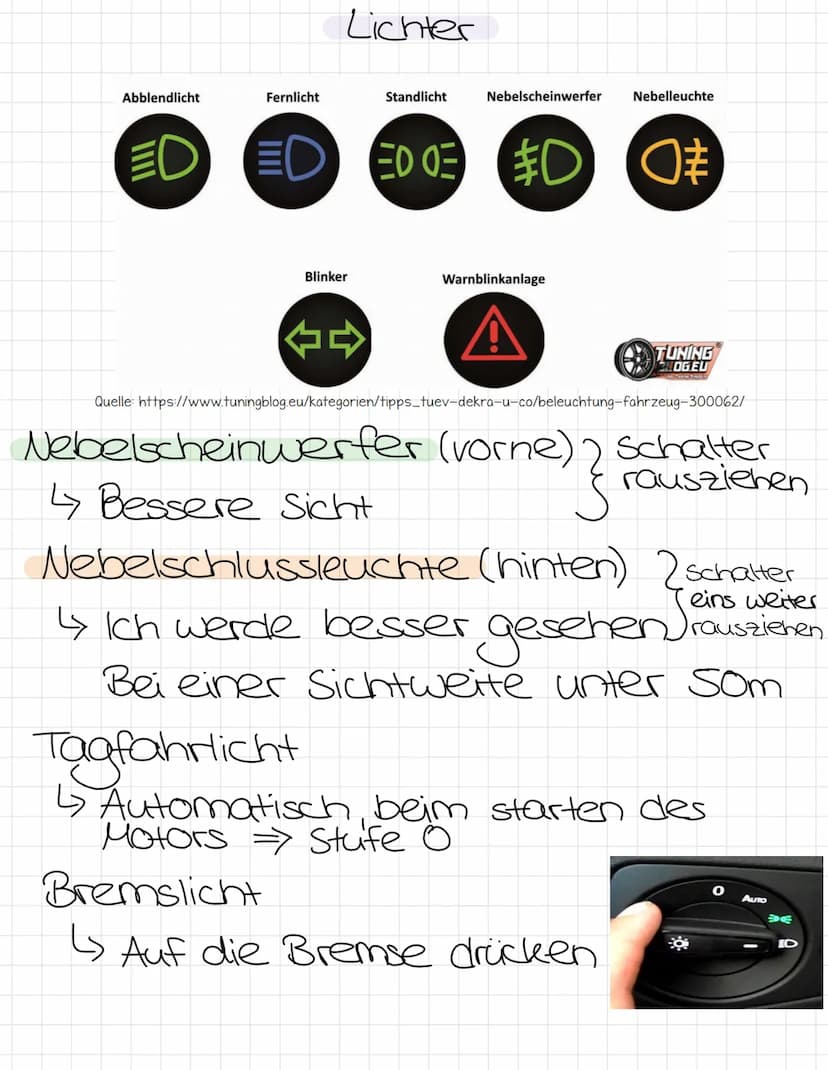 Lichter
Abblendlicht Fernlicht Standlicht Nebelscheinwerfer Nebelleuchte
Blinker Warnblinkanlage
TUNING
OG.EU
Quelle: https://www.tuningblog.eu/kategorien/tipps_tuev-dekra-u-co/beleuchtung-fahrzeug-300062/
Nebelscheinwerfer (vorne) } Schalter
rausziehen
↳ Bessere Sicht
Nebelschlussleuchte (hinten) } schalter
eins weiter
rausziehen
↳ Ich werde besser gesehen
Bei einer Sichtweite unter 50m
Tagfahrlicht
↳ Automatisch, beim starten des
Motors => Stufe 0
Bremslicht
↳ Auf die Bremse drücken
0
AUTO